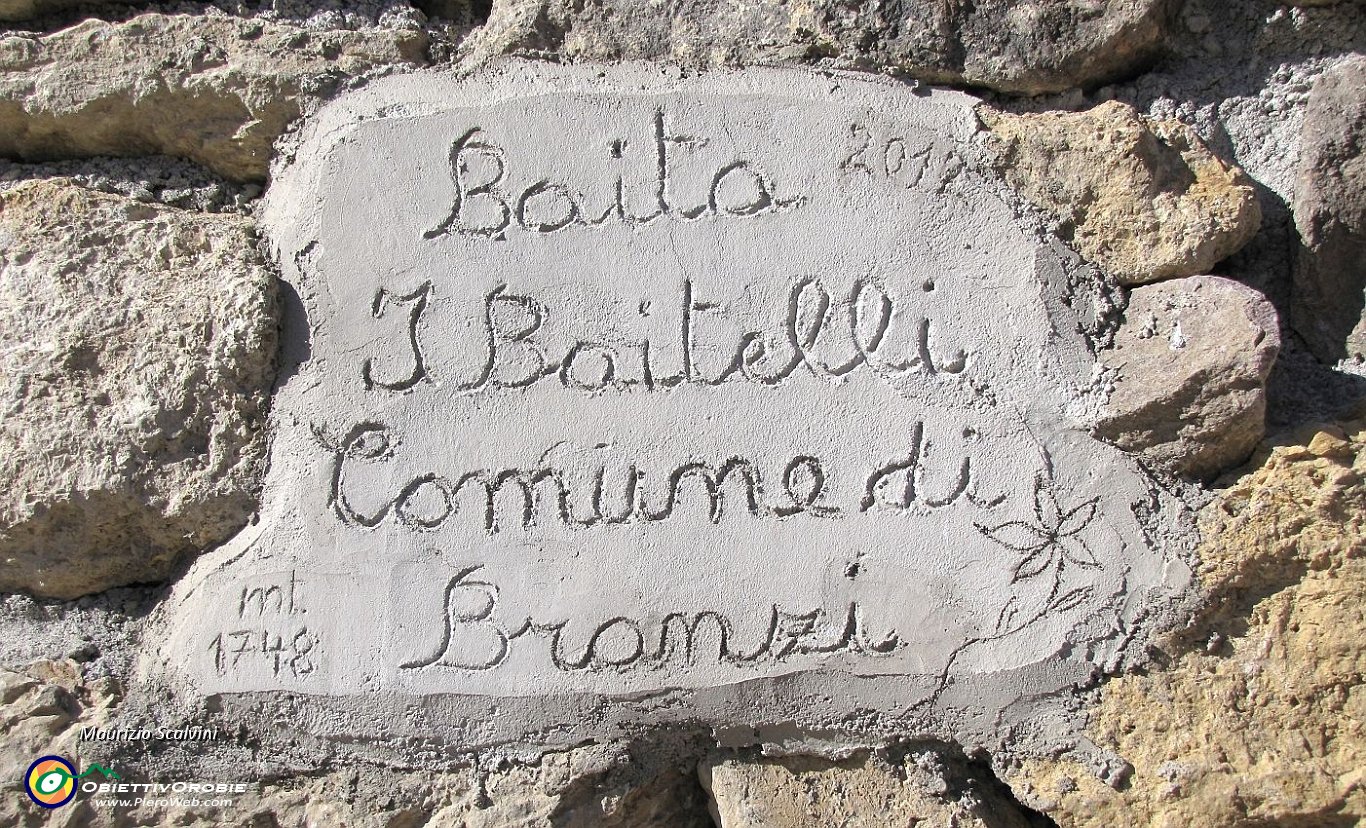 Baita
I Baitelli
Comune di
Branzi
mt.
1748
Maurizio Scalvini
ObiettivOrobie
www.PieroWeb.com